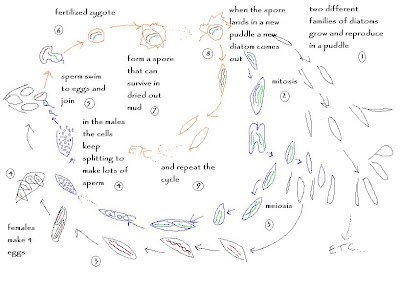 two different
families of diatoms
grow and reproduce
in a puddle
1
mitosis
2
meioisis
3
3
females
make 4
eggs
4
in the males
the cells
keep
splitting to
make lots of
sperm
4
sperm swim
to eggs and
join
5
fertilized zygote
6
form a spore
that can
survive in
dried out
mud
7
when the spore
lands in a new
puddle a new
diatom comes
out
8
and repeat the
cycle
9
ETC...
ETC...